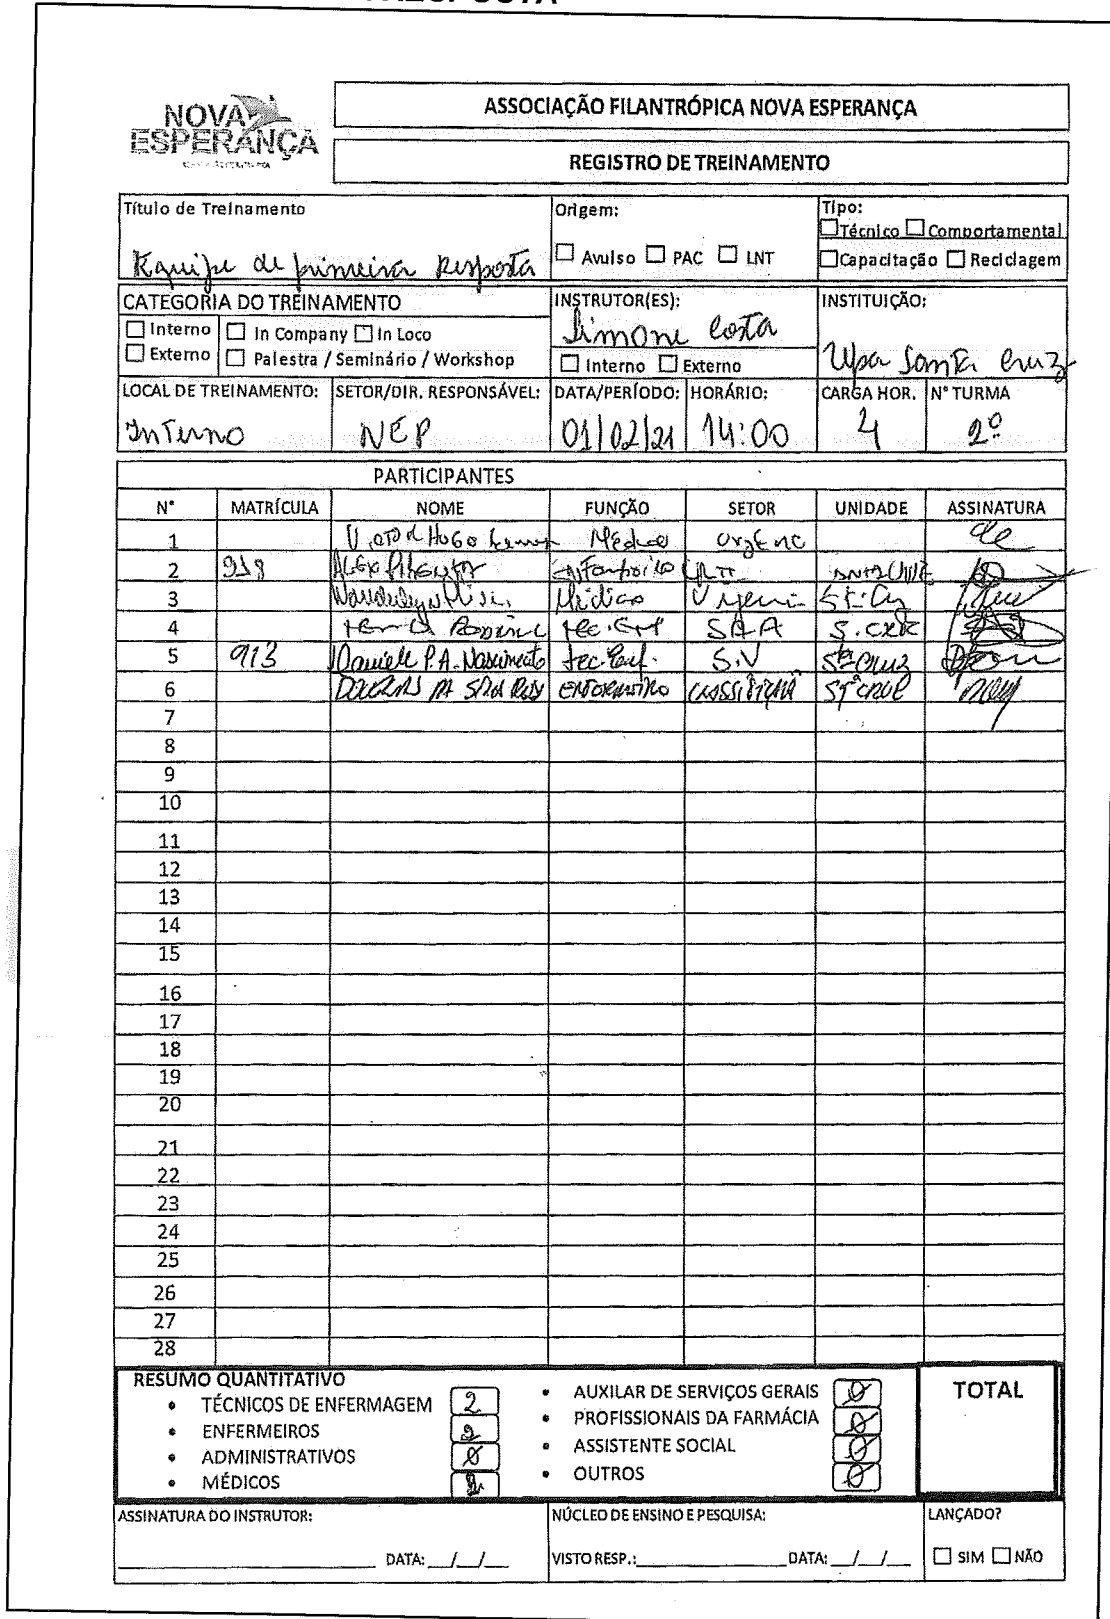 NOVA
ESPERANÇA
ASSOCIAÇÃO FILANTRÓPICA NOVA ESPERANÇA
REGISTRO DE TREINAMENTO
Título de Treinamento
Equipe de primeira resposta
Origem:
Avulso PAC LNT
Tipo:
Técnico Comportamental
Capacitação Reciclagem
CATEGORIA DO TREINAMENTO
Interno In Company In Loco
Externo Palestra / Seminário / Workshop
INSTRUTOR(ES):
Simone Costa
Interno Externo
INSTITUIÇÃO:
Upa Santa Cruz
LOCAL DE TREINAMENTO: SETOR/DIR. RESPONSÁVEL: DATA/PERÍODO: HORÁRIO: CARGA HOR. N° TURMA
Interno NEP 01/02/21 14:00 4 2º
PARTICIPANTES
N° MATRÍCULA NOME FUNÇÃO SETOR UNIDADE ASSINATURA
1 Hugo Médico
2
3 Médico
4 S.
5 913 Daniele P.A. Nascimento S.V Cruz
6 enfermeiro
7
8
9
10
11
12
13
14
15
16
17
18
19
20
21
22
23
24
25
26
27
28
RESUMO QUANTITATIVO
• TÉCNICOS DE ENFERMAGEM 2
• ENFERMEIROS 2
• ADMINISTRATIVOS 0
• MÉDICOS 2
• AUXILAR DE SERVIÇOS GERAIS 0
• PROFISSIONAIS DA FARMÁCIA 0
• ASSISTENTE SOCIAL 0
• OUTROS 0
TOTAL
ASSINATURA DO INSTRUTOR:
DATA: __/__/__
NÚCLEO DE ENSINO E PESQUISA:
VISTO RESP.: DATA: __/__/__
LANÇADO?
SIM NÃO